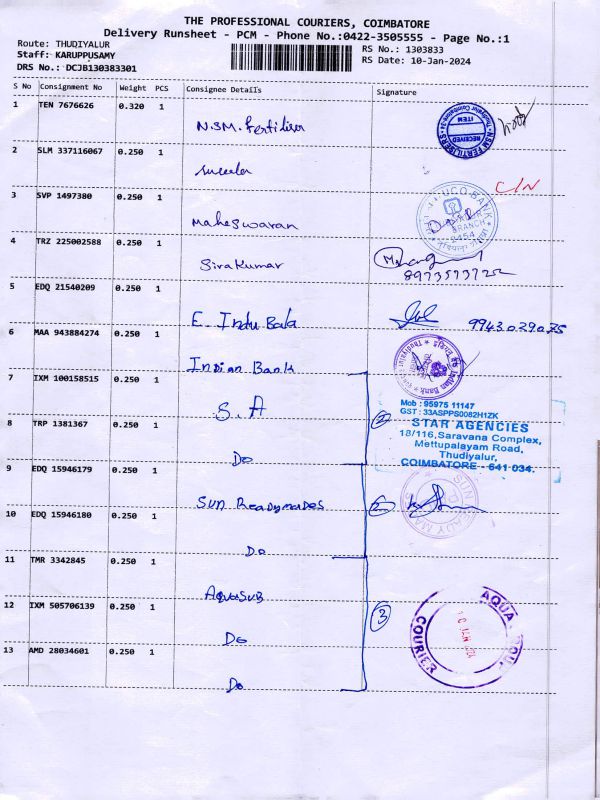 THE PROFESSIONAL COURIERS, COIMBATORE
Delivery Runsheet - PCM - Phone No.:0422-3505555 - Page No.:1
Route: THUDIYALUR
Staff: KARUPPUSAMY
DRS No.: DCJB130383301
RS No.: 1303833
RS Date: 10-Jan-2024
S No Consignment No Weight PCS Consignee Details Signature
1 TEN 7676626 0.320 1
N.S.M. Fertilizer
RECEIVED ITEM
2 SLM 337116067 0.250 1
C/N
3 SVP 1497380 0.250 1
Maheswaran
UCO BANK
BRANCH
4 TRZ 225002588 0.250 1
Siva Kumar
8973573722
5 EDQ 21540209 0.250 1
E. Indu Bala
9943029025
6 MAA 943884274 0.250 1
Indian Bank
Indian Bank
7 IXM 100158515 0.250 1
S. A
2
Mob : 95975 11147
GST : 33ASPPS0082H1ZK
STAR AGENCIES
18/116, Saravana Complex,
Mettupalayam Road,
Thudiyalur,
COIMBATORE - 641 034.
8 TRP 1381367 0.250 1
Do
9 EDQ 15946179 0.250 1
Sun Readymades
2
10 EDQ 15946180 0.250 1
Do
11 TMR 3342845 0.250 1
Aquasub
12 IXM 505706139 0.250 1
Do
3
AQUA
COURIER
13 AMD 28034601 0.250 1
Do